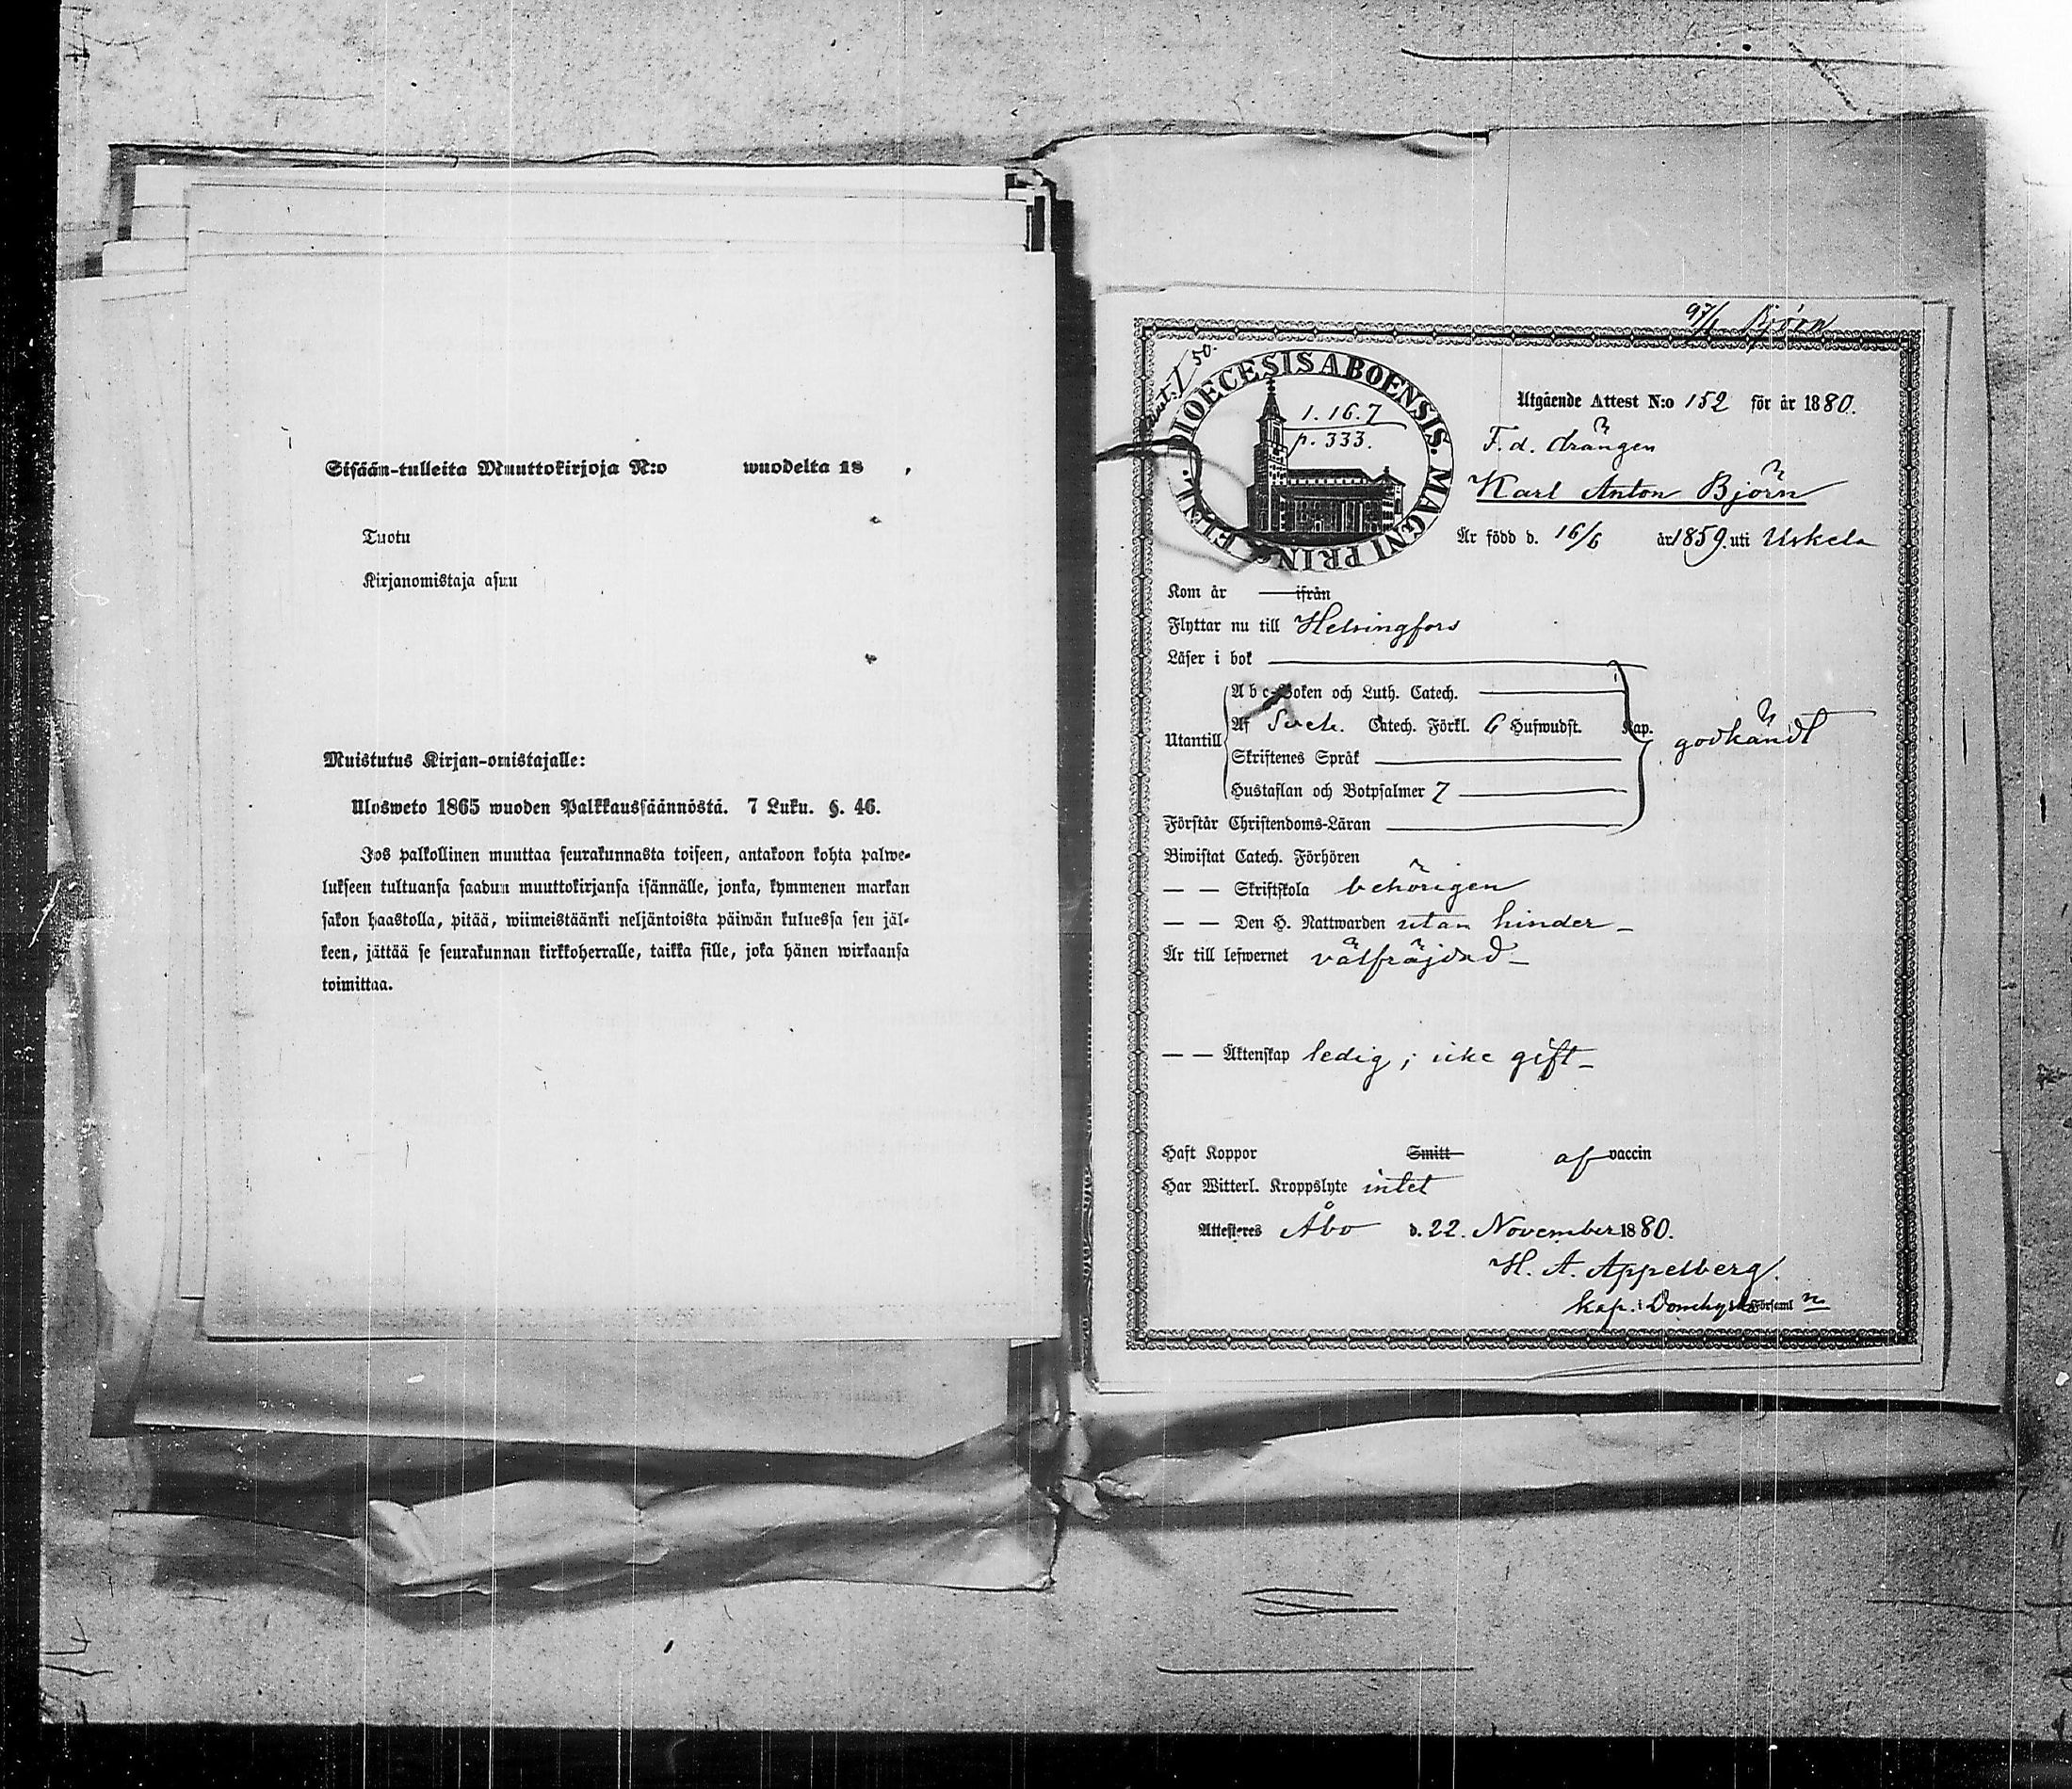 Sisään-tulleita Muuttokirjoja N:o wuodelta 18 .
Tuotu
Kirjanomistaja asuu
Muistutus Kirjan-omistajalle:
Ulosweto 1865 wuoden Palkkaussäännöstä. 7 Luku. §. 46.
Jos palkollinen muuttaa seurakunnasta toiseen, antakoon kohta palwe-
lukseen tultuansa saadun muuttokirjansa isännälle, jonka, kymmenen markan
sakon haastolla, pitää, wiimeistäänki neljäntoista päiwän kuluessa sen jäl-
keen, jättää se seurakunnan kirkkoherralle, taikka sille, joka hänen wirkaansa
toimittaa.
97/1 Björn
50.
DIOECESIS ABOENSIS. MAGNI PRINC. FINL.
1. 16. 7
p. 333.
Utgående Attest N:o 152 för år 1880.
F. d. drängen
Karl Anton Björn
Är född d. 16/6 år 1859. uti Uskela
Kom år ifrån
Flyttar nu till Helsingfors
Läser i bok
Utantill
A b c-Boken och Luth. Catech.
Af Sveb. Catech. Förkl. 6 Hufwudst. Kap. godkändt
Skriftenes Språk
Hustaflan och Botpsalmer 7
Förstår Christendoms-Läran
Biwistat Catech. Förhören
— — Skriftskola behörigen
— — Den H. Nattwarden utan hinder –
Är till lefwernet välfräjdad –
— — Äktenskap ledig; icke gift –
Haft Koppor Smitt af vaccin
Har Witterl. Kroppslyte intet
Attesteres Åbo d. 22. November 1880.
H. A. Appelberg.
kap. i Domkyrko Församl n